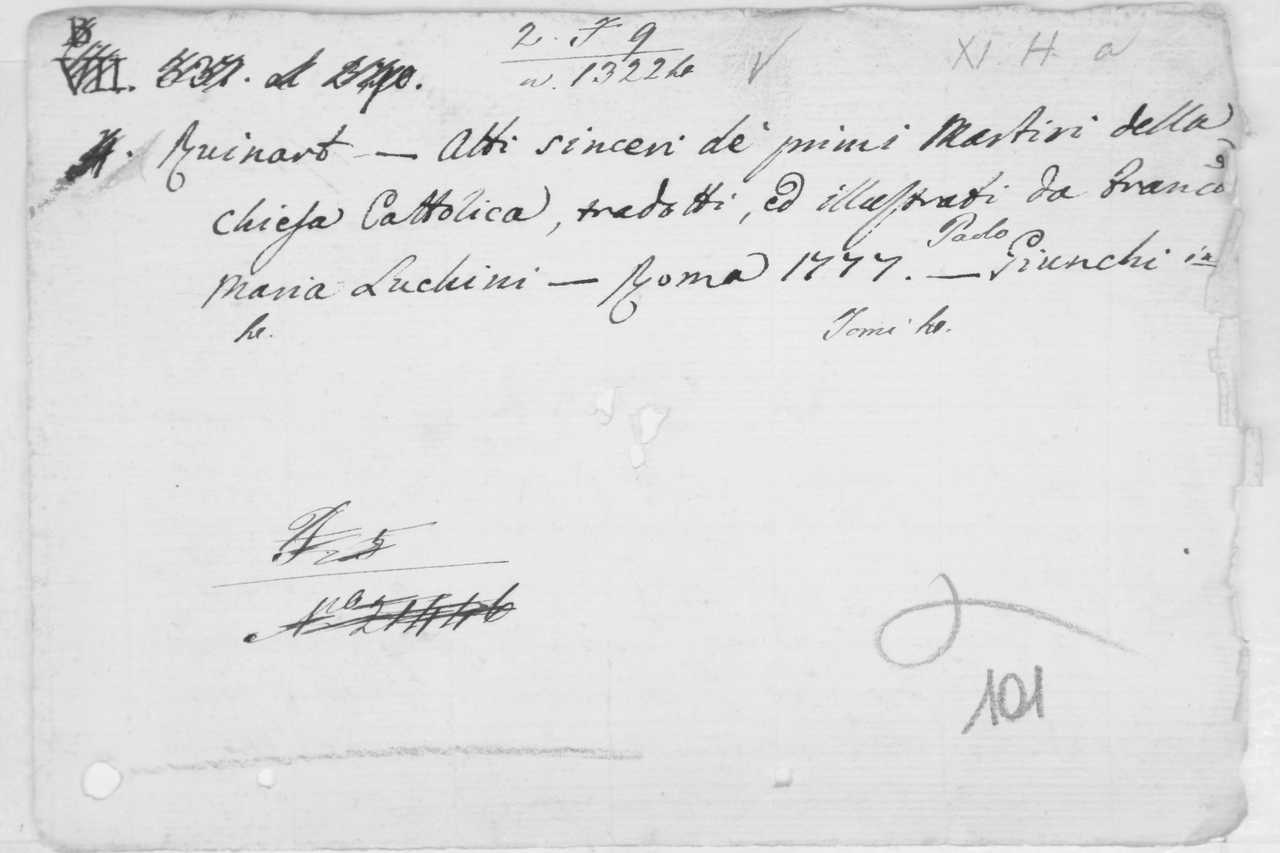 2. F 9
XI. H. a
n. 1322
Ruinart — Atti sinceri de' primi Martiri della
chiesa Cattolica, tradotti, ed illustrati da Franc.co
Maria Luchini — Roma 1777. — Paolo Giunchi in
Tomi
101